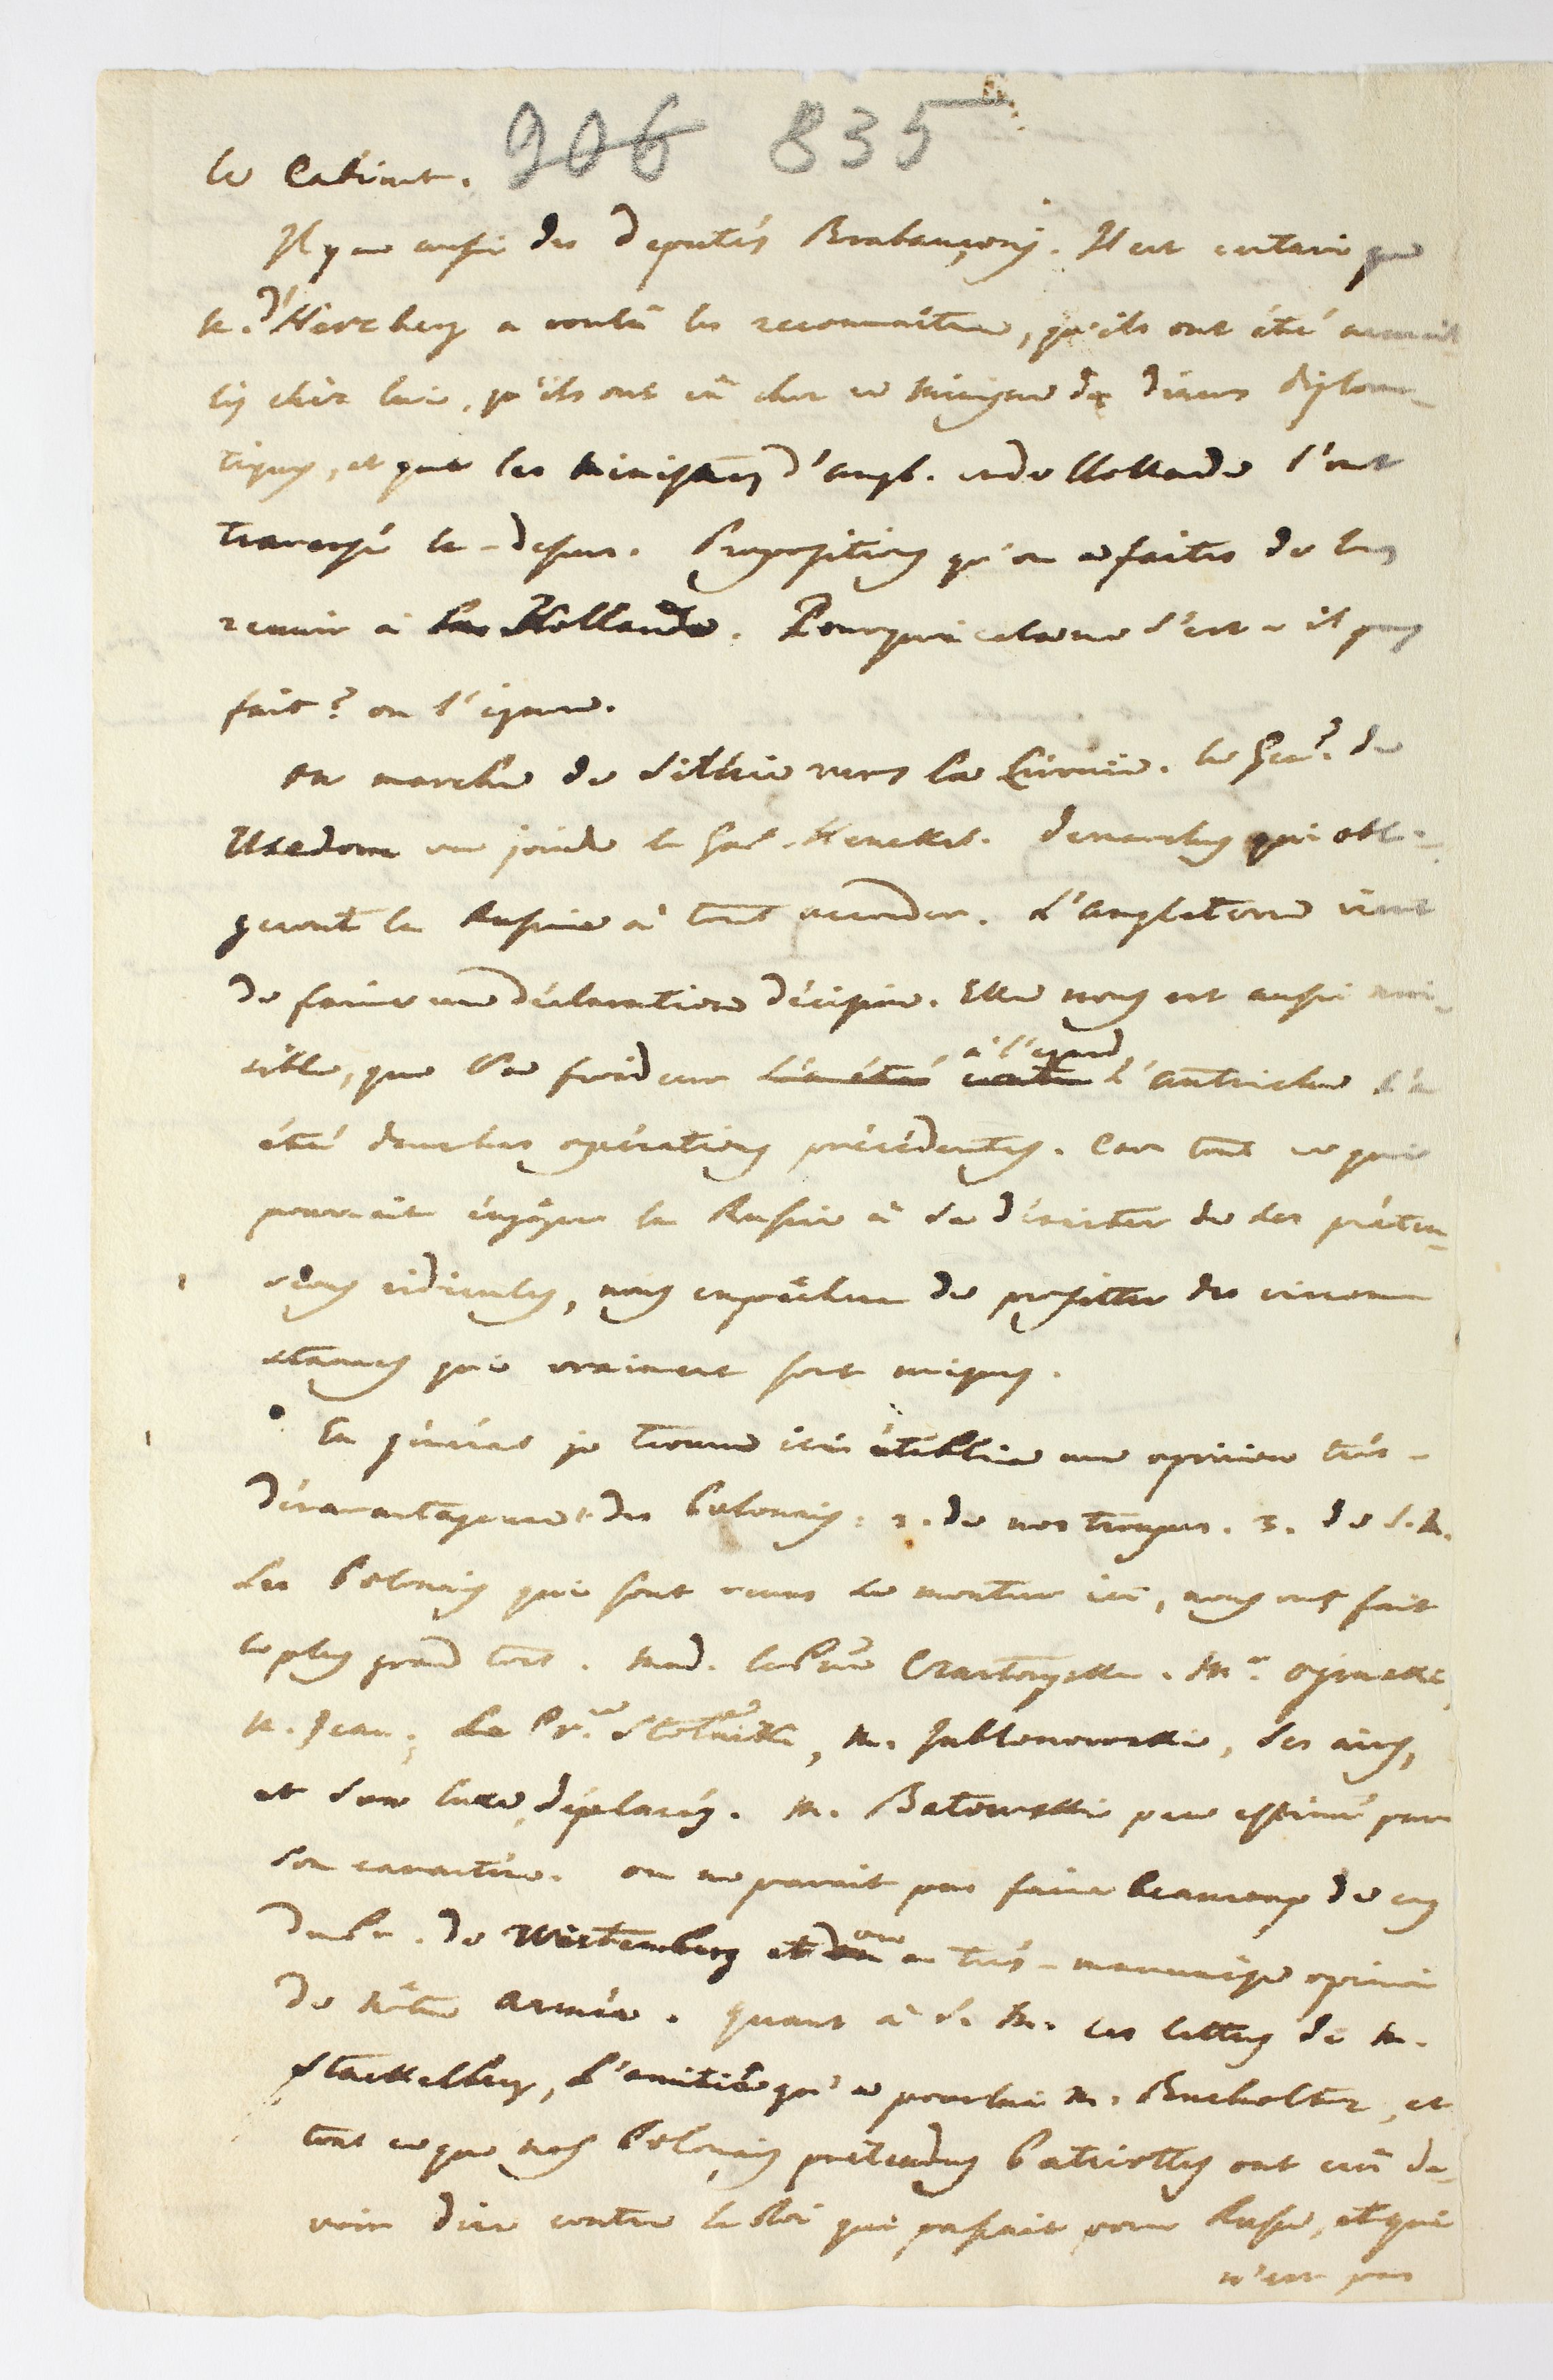 906 835
le Cabinet.
Il y a aussi des Députés Brabançons. Il est certain que
M. d'Herzberg a voulu les reconnaitre, qu'ils ont été accueil-
lis chéz lui, qu'ils ont vû chez ce Ministre de divers diploma-
tiques, et que les Ministres d'angl. et de Hollande l'ont
traversé la-dessus. Propositions qu'on a faites de les
reunir à la Hollande. Pourquoi cela ne s'est-il pas
fait? on l'ignore.
On marche de Silésie vers la Livonie. le Gen.l de
Usedom va joindre le Gal. Henckel. Demarches qui obli-
geront la Russie à tout accorder. L'angleterre vient
de faire une déclaration décisive. Elle nous est aussi nui-
sible, que Sa froideur l'a été contre à l'egard de l'autriche l'a
été dans les opérations précédentes. Car tout ce qui
pourrait engâger la Russie à se désister de ses préten-
sions ridicules, nous empêchera de profiter des circon-
stances qui vraiment sont uniques.
En général je trouve ici établie une opinion trés-
désavantageuse 1. des Polonais. 2. de nos troupes. 3. de S. M.
Les Polonais qui sont venus se montrer ici, nous ont fait
le plus grand tort. Mad. la Pcesse Czartoryska. Mr. Oginski
M. Jean, La Pr.sse Stolnik, M. Jablonowski, ses airs,
et son luxe, déplacés. M. Batowski peu estimé par
son caractère. on ne parait pas faire beaucoup de cas
du Pr. de Wirtemberg et on a trés-mauvaise opinion
de nôtre armée. Quant à S. M. les lettres de M.
Stackelberg, l'amitié qu'a pour lui M. Bucholtz, et
tout ce que nos Polonais prétendus Patriottes ont crû de-
voir dire contre le Roi qui passait pour Russe, et qui
n'est pas